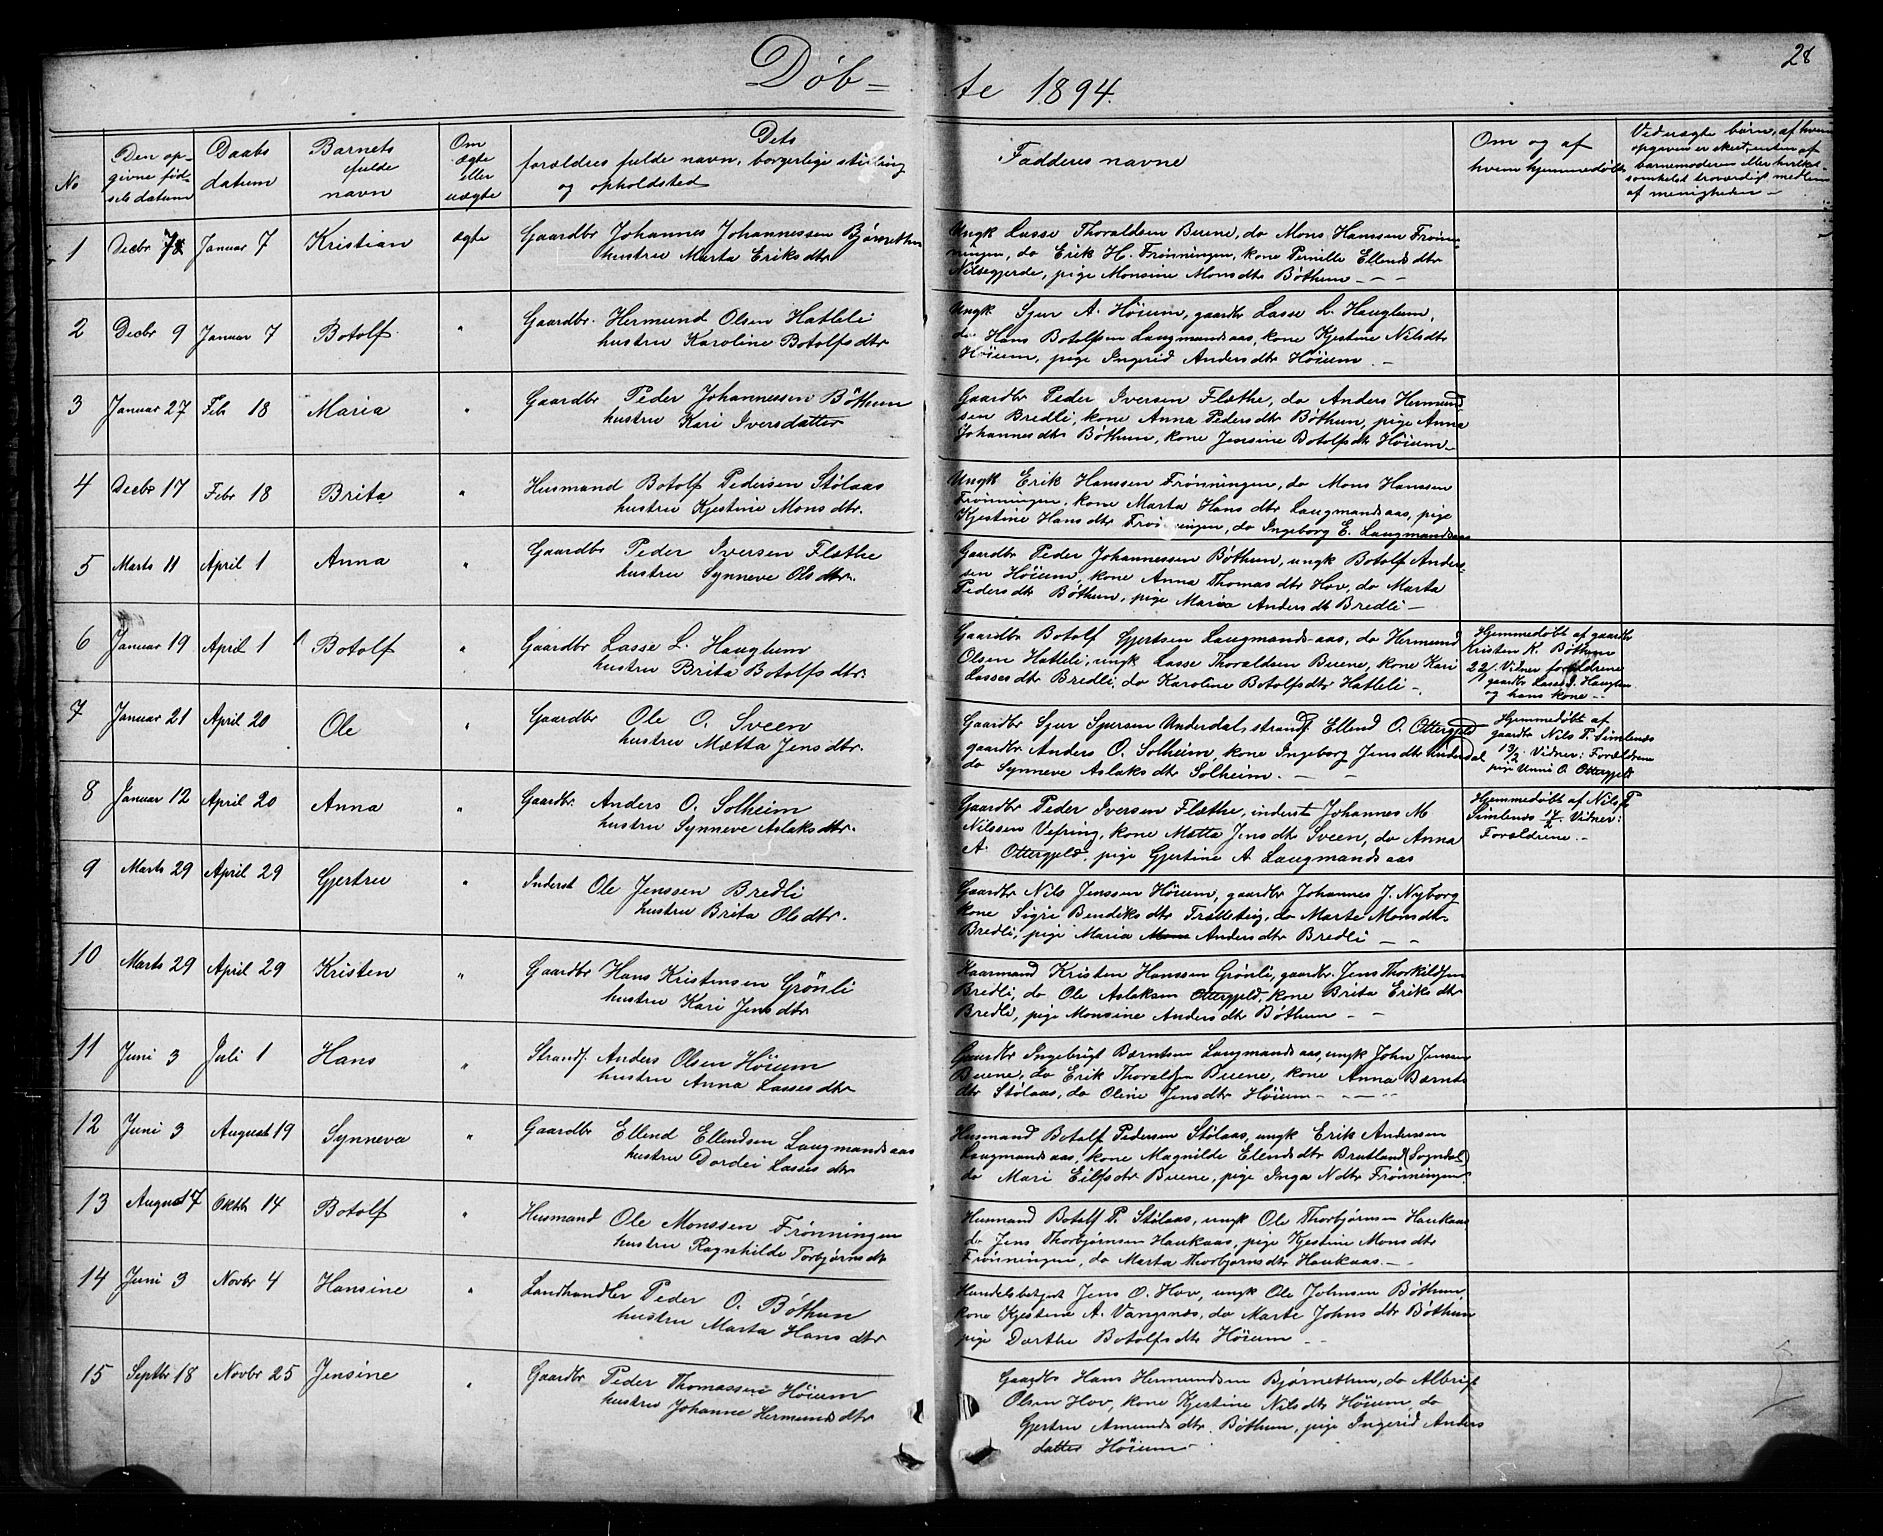 28
Døb= te 1894.
No
Den op-
givne fød-
selsdatum
Daabs
datum
Barnets
fulde
navn
Om
ægte
eller
uægte
Dets
forældres fulde navn, borgerlige stilling
og opholdsted
Fadderes navne
Om og af
hvem hjemmedøbt
Ved uægte børn, af hvem
opgaven er skeet, enten af
barnemoderen eller hvilket-
somhelst troværdigt medlem
af menigheden —
1 Decbr 7 Januar 7 Kristian ægte Gaardbr Johannes Johannessen Bjørnethun
hustru Marta Eriksdtr
Ungk Lasse Thoraldsen Buene, do Mons Hanssen Frøn-
ningen, do Erik H. Frønningen, kone Pernille Ellendsdtr
Nilsegjerde, pige Monsine Monsdtr Bøthun — - -
2 Decbr 9 Januar 7 Botolf. " Gaardbr. Hermund Olsen Hatleli
hustru Karoline Botolfsdtr
Ungk Sjur A. Høium, gaardbr Lasse L. Hauglum,
do Hans Botolfsen Laugmandsaas, kone Kjestine Nilsdtr
Høium, pige Ingerid Andersdtr Høium. -
3 Januar 27 Feb 18 Maria " Gaardbr Peder Johannessen Bøthun
hustru Kari Iversdatter
Gaardbr Peder Iversen Flæthe, do Anders Hermund
sen Bredli, kone Anna Pedersdtr Bøthun, pige Anna
Johannesdtr Bøthun, kone Jensine Botolfsdtr Høium —
4 Decbr 17 Febr 18 Brita " Husmand Botolf Pedersen Stølaas
hustru Kjestine Monsdtr.
Ungk Erik Hanssen Frønningen, do Mons Hanssen
Frønningen, kone Marta Hansdtr Laugmandsaas, pige
Kjestine Hansdtr Frønningen, do Ingeborg E. Laugmandsaas
5 Marts 11 April 1 Anna " Gaardbr Peder Iversen Flæthe
hustru Synneve Olsdtr.
Gaardbr Peder Johannessen Bøthun, ungk Botolf Anders-
sen Høium, kone Anna Thomasdtr Hov, do Marta
Pedersdtr Bøthun, pige Maria Andersdt Bredli —
6 Januar 19 April 1 Botolf " Gaardbr Lasse L. Hauglum
hustru Brita Botolfsdtr.
Gaardbr Botolf Gjertsen Laugmandsaas, do Hermund
Olsen Hatleli, ungk Lasse Thoraldsen Buene, kone Kari
Lassesdtr Bredli, do Karoline Botolfsdtr Hatleli -
Hjemmedøbt af gaardbr
Kristen K. Bøthun
22/1. Vidner forældrene
gaardbr Lasse J. Hauglum
og hans kone -
7 Januar 21 April 20 Ole " Gaardbr Ole O. Sveen
hustru Mætta Jensdtr.
Gaardbr Sjur Sjursen Underdal, strandf. Ellend O. Ottergjeld
gaardbr Anders O. Solheim, kone Ingeborg Jensdtr Underdal
do Synneve Aslaksdtr Solheim. — -
Hjemmedøbt af
gaardbr Nils P. Simlenes
13/2. Vidner: Forældrene
pige Unni O. Ottergjeld
8 Januar 12 April 20 Anna " Gaardbr. Anders O. Solheim
hustru Synneve Aslaksdtr.
Gaardbr Peder Iversen Flæthe, inderst Johannes M
Nilssen Vefring, kone Mætta Jensdtr Sveen, do Anna
A. Ottergjeld, pige Gjertine A Laugmandsaas
Hjemmedøbt af Nils P.
Simlenes 17/2 Vidner:
Forældrene. -
9 Marts 29 April 29 Gjertru " Inderst Ole Jenssen Bredli
hustru Brita Olsdtr.
Gaardbr Nils Jenssen Høium, gaardbr Johannes J. Nyborg
kone Sigri Bendiksdtr Trælleteig, do Marte Monsdtr
Bredli, pige Maria Mons Andersdtr Bredli — -
10 Marts 29 April 29 Kristen " Gaardbr Hans Kristensen Grønli
hustru Kari Jensdtr
Kaarmand Kristen Hanssen Grønli, gaardbr. Jens Thorkildsen
Bredli, do Ole Aslaksen Ottergjeld, kone Brita Eriksdtr
Bredli, pige Monsine Andersdtr Bøthun - -
11 Juni 3 Juli 1 Hans " Strandf. Anders Olsen Høium
hustru Anna Lassesdtr
Gaardbr Ingebrigt Bærntsen Laugmandsaas, ungk John Jenssen
Buene, do Erik Thoraldsen Buene, kone Anna Bærnts
dtr Stølaas, do Oline Jensdtr Høium - - - -
12 Juni 3 August 19 Synneva " Gaardbr Ellend Ellendsen Laugmandsaas
hustru Dordei Lassesdtr
Husmand Botolf Pedersen Stølaas, ungk Erik Andersen
Laugmandsaas, kone Magnilde Elendsdtr Brutland (Sogndal)
do Mari Eilfsdtr Buene, pige Inga Ndtr Frønningen
13 August 7 Oktbr 14 Botolf " Husmand Ole Monssen Frønningen
hustru Ragnhilde Torbjørnsdtr
Husmand Botolf P. Stølaas, ungk Ole Thorbjørnsen Haukaas
do Jens Thorbjørnsen Haukaas, pige Kjestine Monsdtr
Frønningen, do Marta Thorbjørnsdtr Haukaas. -
14 Juni 3 Novbr 4 Hansine " Landhandler Peder O. Bøthun
hustru Marta Hansdtr
Handelsbetjent Jens O. Hov, ungk Ole Johnsen Bøthun,
kone Kjestine A. Vangsnes, do Marte Johnsdtr Bøthun
pige Dorthe Botolfsdtr Høium - -
15 Septbr 18 Novbr 25 Jensine " Gaardbr Peder Thomassen Høium
hustru Johanne Hermundsdtr
Gaardbr Hans Hermundsen Bjørnethun, do Albrigt
Olsen Hov, kone Kjestine Nilsdtr Høium, do
Gjertru Amundsdtr. Bøthun, pige Ingerid Anders
datter Høium -